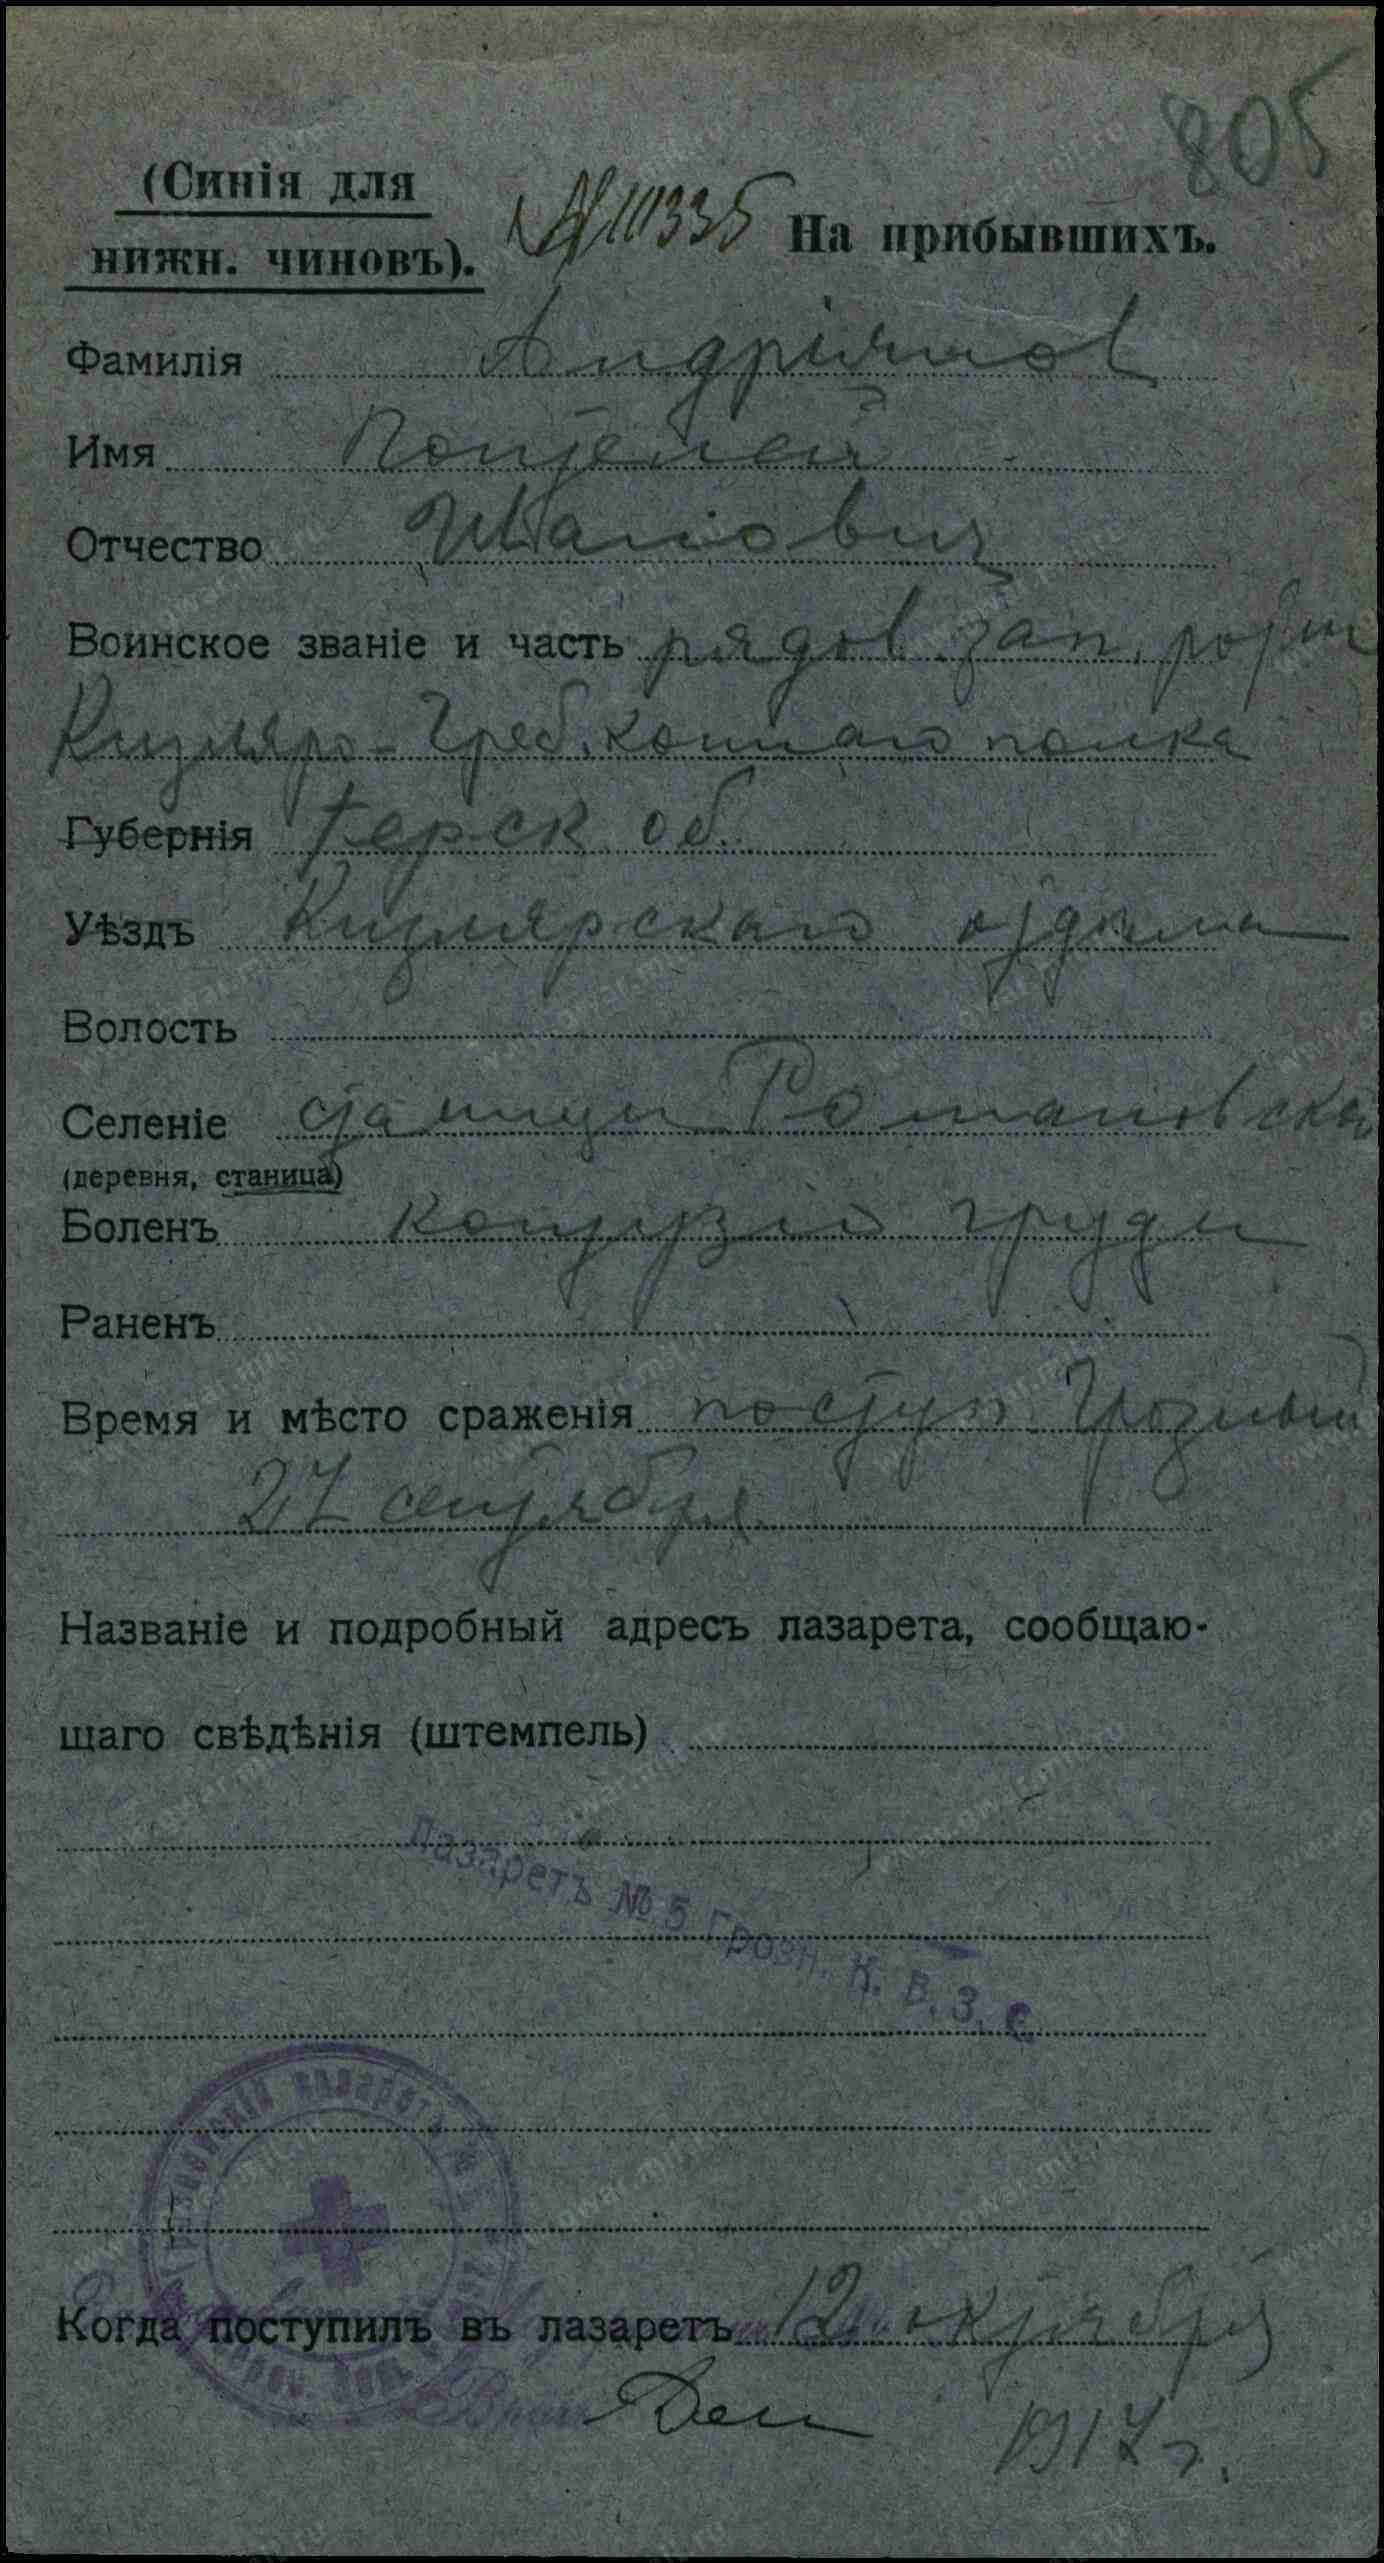 805
(Синія для
нижн. чиновъ).
№ 111335 На прибывшихъ.
Фамилія Андріянов
Имя Понтелей
Отчество Иванович
Воинское званіе и часть рядов. зап.
Кизляро-Греб. коннаго полка
Губернія Терск. об.
Уѣздъ Кизлярскаго отдѣла
Волость
Селеніе станицы Романовской
(деревня, станица)
Боленъ контузія груди
Раненъ
Время и мѣсто сраженія поступ. Грозный
27 сентября
Названіе и подробный адресъ лазарета, сообщаю-
щаго свѣдѣнія (штемпель)
Лазаретъ № 5 Грозн. К. В. З. С.
лазаретъ
Когда поступилъ въ лазаретъ 12 октября
1917 г.